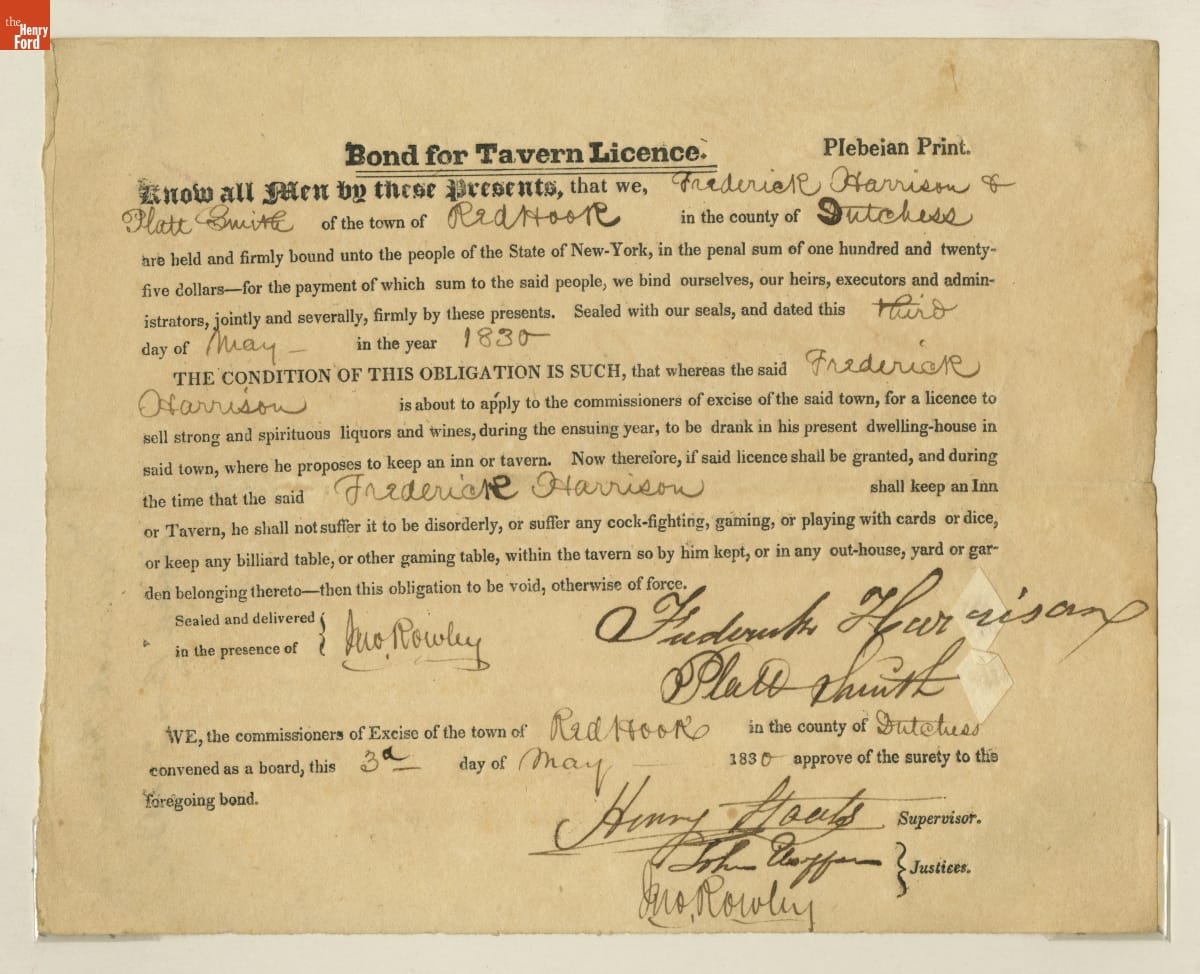 the Henry Ford
Bond for Tavern Licence. Plebeian Print.
Know all Men by these Presents, that we, Frederick Harrison &
Platt Smith of the town of Red Hook in the county of Dutchess
are held and firmly bound unto the people of the State of New-York, in the penal sum of one hundred and twenty-
five dollars—for the payment of which sum to the said people, we bind ourselves, our heirs, executors and admin-
istrators, jointly and severally, firmly by these presents. Sealed with our seals, and dated this third
day of May — in the year 1830
THE CONDITION OF THIS OBLIGATION IS SUCH, that whereas the said Frederick
Harrison is about to apply to the commissioners of excise of the said town, for a licence to
sell strong and spirituous liquors and wines, during the ensuing year, to be drank in his present dwelling-house in
said town, where he proposes to keep an inn or tavern. Now therefore, if said licence shall be granted, and during
the time that the said Frederick Harrison shall keep an Inn
or Tavern, he shall not suffer it to be disorderly, or suffer any cock-fighting, gaming, or playing with cards or dice,
or keep any billiard table, or other gaming table, within the tavern so by him kept, or in any out-house, yard or gar-
den belonging thereto—then this obligation to be void, otherwise of force.
Sealed and delivered
in the presence of } Jno. Rowley
Frederick Harrison
Platt Smith
WE, the commissioners of Excise of the town of Red Hook in the county of Dutchess
convened as a board, this 3d day of May — 1830 approve of the surety to the
foregoing bond.
Henry Staats Supervisor.
John
Jno. Rowley } Justices.